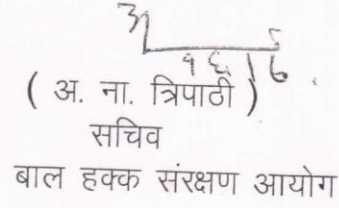 ( अ. ना. त्रिपाठी )
सचिव
बाल हक्क संरक्षण आयोग